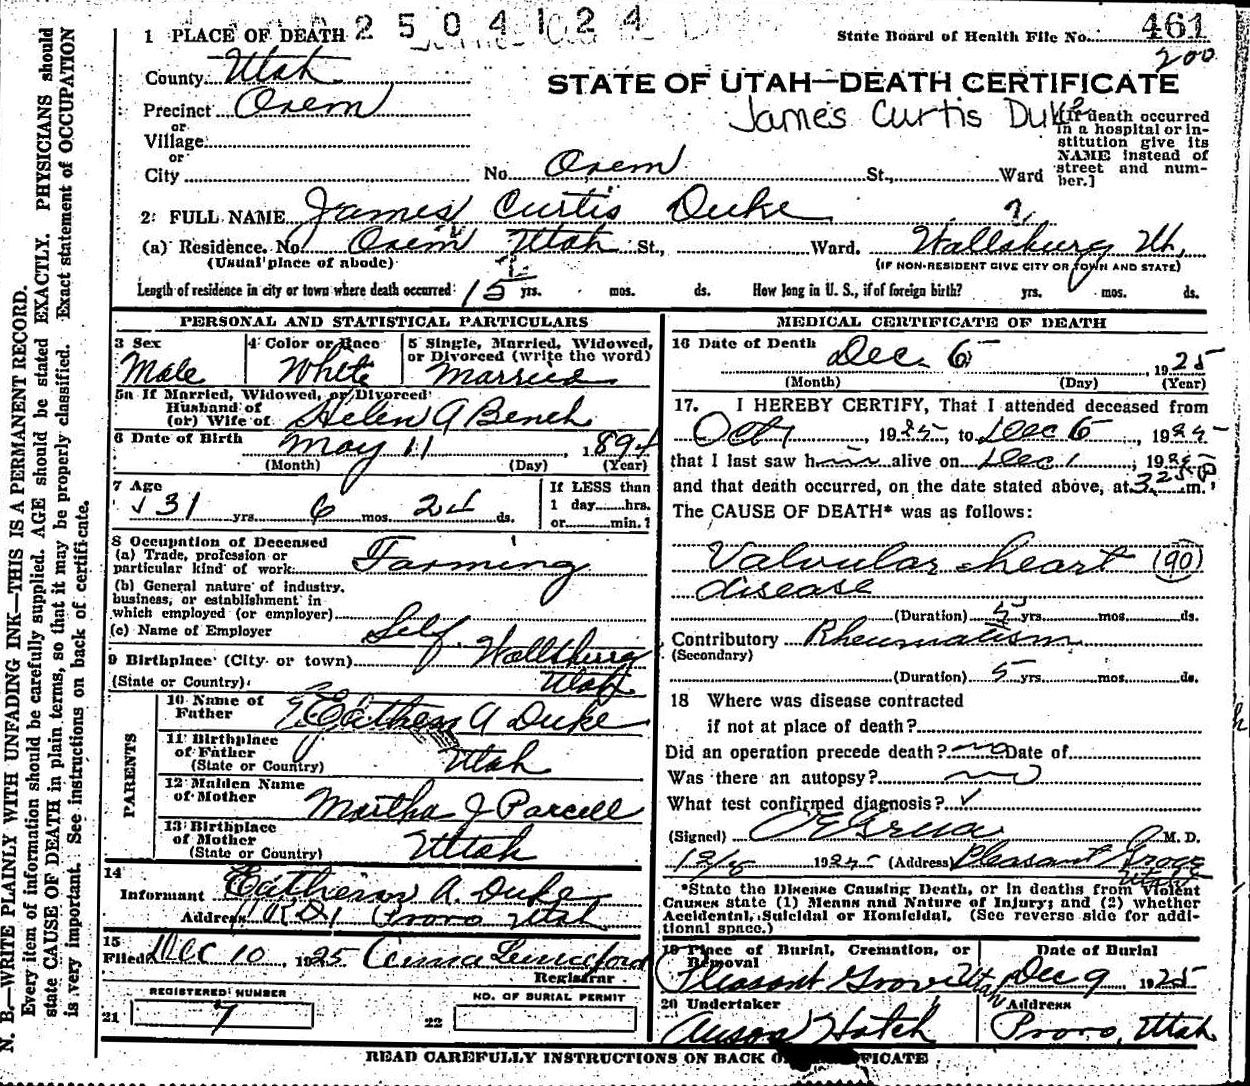 2 5 0 4 1 2 4
State Board of Health File No. 461
200
1 PLACE OF DEATH
County Utah
STATE OF UTAH—DEATH CERTIFICATE
Precinct Orem
James Curtis Duke
[If death occurred in a hospital or institution give its NAME instead of street and number.]
or
Village
or
City No. Orem St., Ward
2 FULL NAME James Curtis Duke
(a) Residence. No. Orem Utah St., Ward. Wallsburg Ut.
(Usual place of abode) (IF NON-RESIDENT GIVE CITY OR TOWN AND STATE)
Length of residence in city or town where death occurred 15 yrs. mos. ds. How long in U. S., if of foreign birth? yrs. mos. ds.
PERSONAL AND STATISTICAL PARTICULARS
3 Sex
Male
4 Color or Race
White
5 Single, Married, Widowed, or Divorced (write the word)
Married
5a If Married, Widowed, or Divorced
Husband of
(or) Wife of Helen A Bench
6 Date of Birth May 11, 1894
(Month) (Day) (Year)
7 Age
31 yrs. 6 mos. 24 ds.
If LESS than
1 day hrs.
or min.?
8 Occupation of Deceased
(a) Trade, profession or
particular kind of work Farming
(b) General nature of industry,
business, or establishment in
which employed (or employer)
(c) Name of Employer Self
9 Birthplace (City or town) Wallsburg
(State or Country) Utah
PARENTS
10 Name of
Father A Duke
11 Birthplace
of Father
(State or Country) Utah
12 Maiden Name
of Mother Martha J Parcell
13 Birthplace
of Mother
(State or Country) Utah
14
Informant A. Duke
Address R D 1 Provo Utah
15
Filed Dec 10, 1925
Registrar
REGISTERED NUMBER
21 7
NO. OF BURIAL PERMIT
22
MEDICAL CERTIFICATE OF DEATH
16 Date of Death Dec. 6, 1925
(Month) (Day) (Year)
17. I HEREBY CERTIFY, That I attended deceased from
Oct, 1925, to Dec 6, 1925
that I last saw him alive on Dec 1, 1925
and that death occurred, on the date stated above, at 325 P m.
The CAUSE OF DEATH* was as follows:
Valvular heart (90)
disease
(Duration) 5 yrs. mos. ds.
Contributory Rheumatism
(Secondary)
(Duration) 5 yrs. mos. ds.
18 Where was disease contracted
if not at place of death?
Did an operation precede death? no Date of
Was there an autopsy? no
What test confirmed diagnosis?
(Signed) M. D.
1925 (Address) Pleasant Grove
Utah
*State the Disease Causing Death, or in deaths from Violent
Causes state (1) Means and Nature of Injury; and (2) whether
Accidental, Suicidal or Homicidal. (See reverse side for addi-
tional space.)
19 Place of Burial, Cremation, or
Removal
Pleasant Grove Utah
Date of Burial
Dec 9 1925
20 Undertaker
Hatch
Address
Provo, Utah
READ CAREFULLY INSTRUCTIONS ON BACK OF CERTIFICATE
N. B.—WRITE PLAINLY WITH UNFADING INK—THIS IS A PERMANENT RECORD.
Every item of information should be carefully supplied. AGE should be stated EXACTLY. PHYSICIANS should
state CAUSE OF DEATH in plain terms, so that it may be properly classified. Exact statement of OCCUPATION
is very important. See instructions on back of certificate.